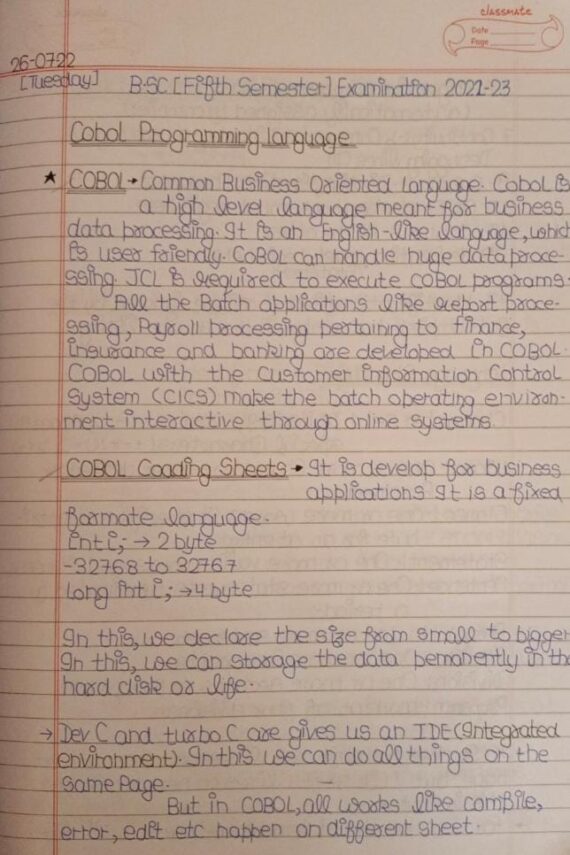 classmate
Date
Page
26-0722
[Tuesday]
B.SC [Fifth Semester] Examination 2021-23
Cobol Programming language
★ COBOL → Common Business Oriented language. Cobol is
a high level language meant for business
data processing. It is an English-like language, which
is user friendly. COBOL can handle huge data proce-
ssing. JCL is required to execute COBOL programs.
All the Batch applications like report proce-
ssing, Payroll processing pertaining to finance,
insurance and banking are developed in COBOL.
COBOL with the Customer information Control
System (CICS) make the batch operating environ-
ment interactive through online systems
COBOL Coading Sheets → It is develop for business
applications It is a fixed
formate language.
int i; → 2 byte
-32768 to 32767
long int i; → 4 byte
In this, we declare the size from small to bigger
In this, we can storage the data pemanently in the
hard disk or life.
→ Dev C and turbo C are gives us an IDE (Integrated
environment). In this we can do all things on the
same Page.
But in COBOL, all works like compile,
error, edit etc happen on different sheet.